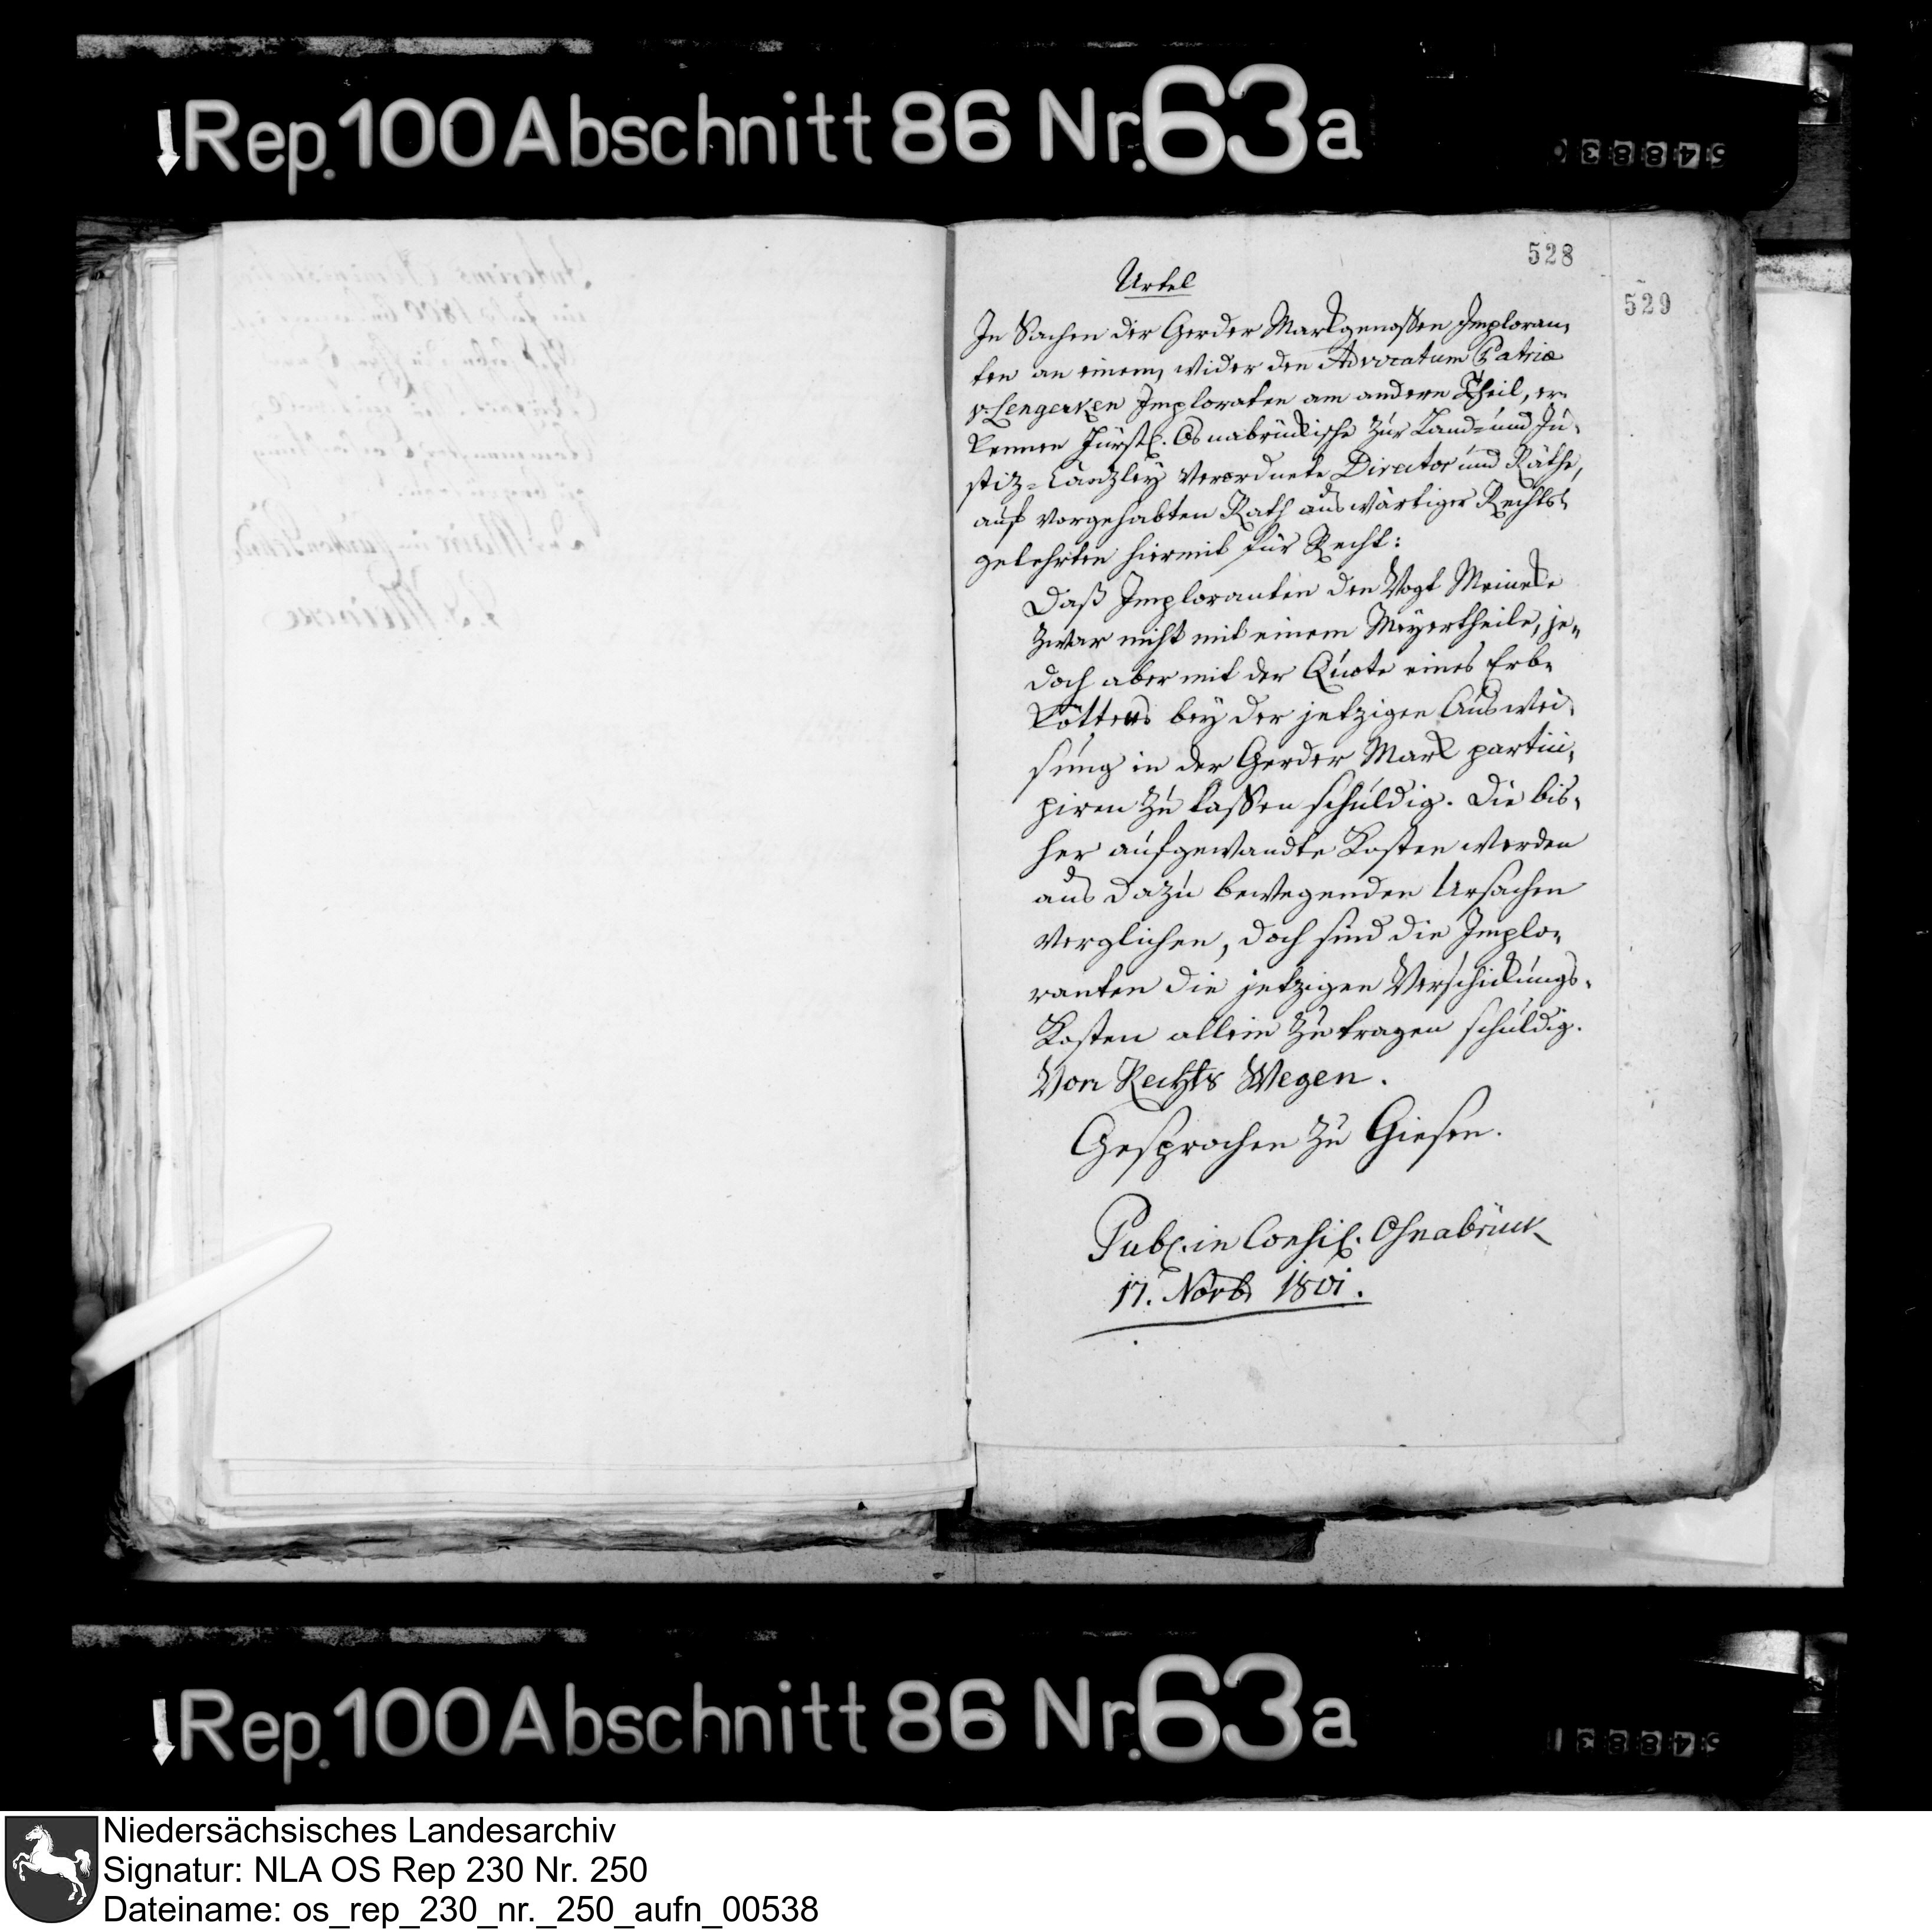 Rep. 100 Abschnitt 86 Nr. 63a
528
529
Urtel
In Sachen der Gerder Markgenoßen Imploran,
ten an einem, wider den Advocatum Patriæ
v. Lengerken Imploraten am andern Theil, er-
kennen Fürstl. Osnabrückische zur Land- und Ju-
stiz-Canzley verordnete Director und Räthe,
auf vorgehabten Rath auswärtiger Rechts-
gelehrten hiermit für Recht:
Daß Imploranten den Vogt Meineke
zwar nicht mit einem Meyertheile, je-
doch aber mit der Quote eines Erb-
Kötters bey der jetzigen Auswei-
sung in der Gerder Mark partici-
piren zu laßen schuldig. Die bis-
her aufgewandte Kosten werden
aus dazu bewegenden Ursachen
verglichen, doch sind die Implo-
ranten die jetzigen Verschickungs-
Kosten allein zu tragen schuldig.
Von Rechts Wegen.
Gesprochen zu Giesen.
Publ. in Consil. Osnabrück
17. Novb. 1801.
Rep. 100 Abschnitt 86 Nr. 63a
Niedersächsisches Landesarchiv
Signatur: NLA OS Rep 230 Nr. 250
Dateiname: os_rep_230_nr._250_aufn_00538